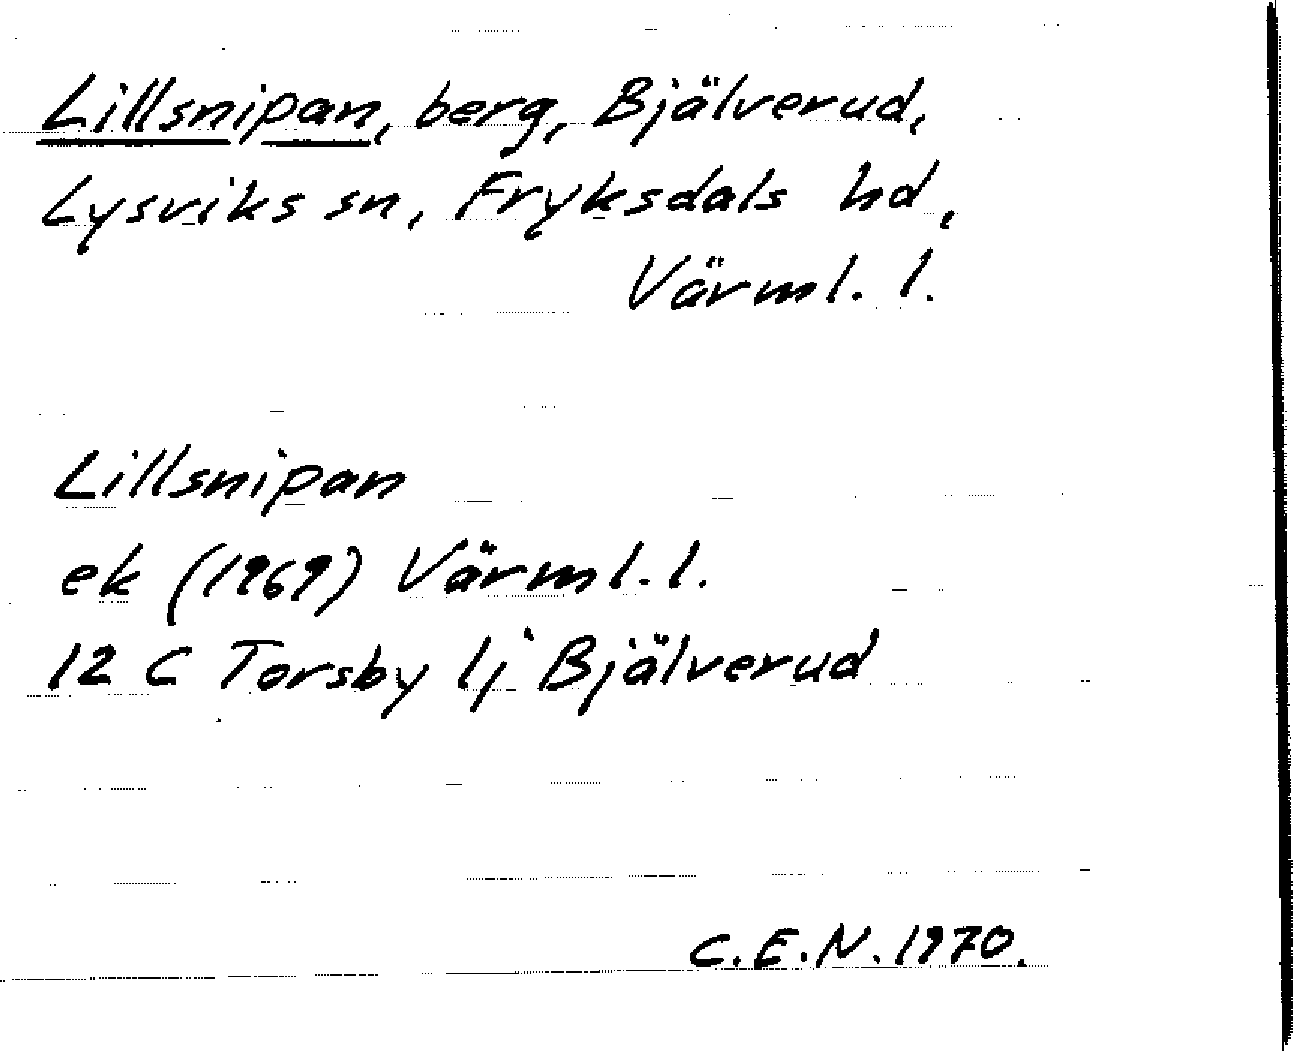 Lillsnipan, berg, Bjälverud,
Lysviks sn, Fryksdals hd,
Värml. l.
Lillsnipan
ek (1969) Värml. l.
12 C Torsby lj Bjälverud
C.E.N. 1970.